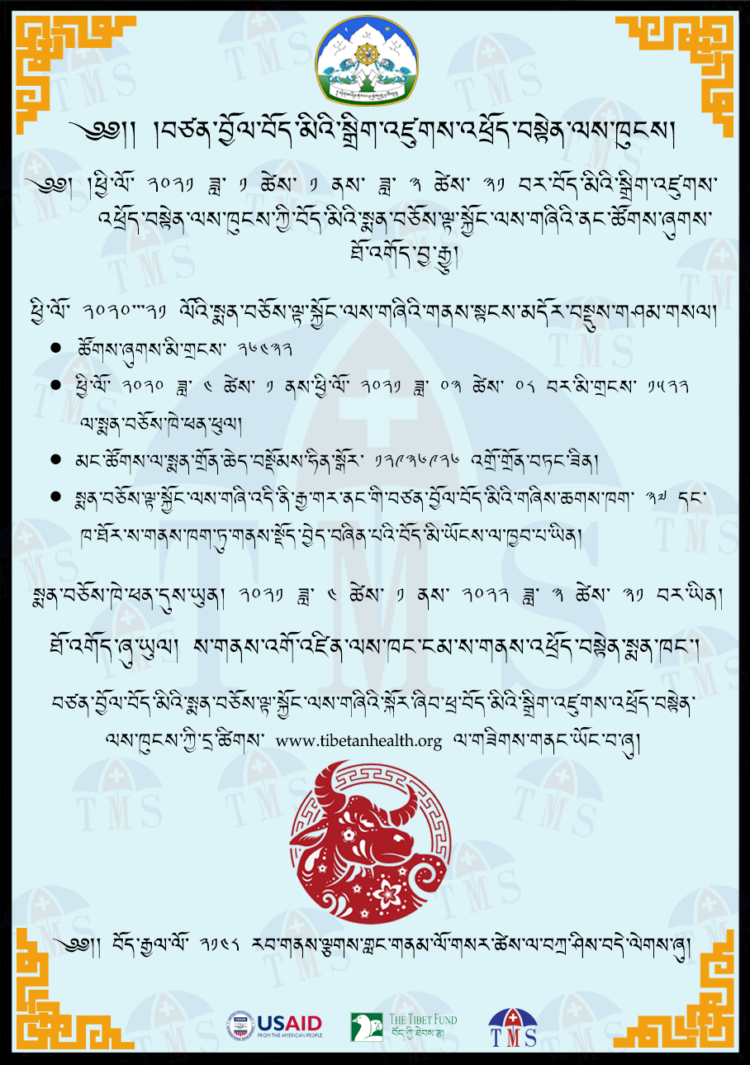 ༄༅།། །བཙན་བྱོལ་བོད་མིའི་སྒྲིག་འཛུགས་འཕྲོད་བསྟེན་ལས་ཁུངས།
༄༅། །ཕྱི་ལོ་ ༢༠༢༡ ཟླ་ ༡ ཚེས་ ༡ ནས་ ཟླ་ ༣ ཚེས་ ༣༡ བར་བོད་མིའི་སྒྲིག་འཛུགས་
འཕྲོད་བསྟེན་ལས་ཁུངས་ཀྱི་བོད་མིའི་སྨན་བཅོས་ལྟ་སྐྱོང་ལས་གཞིའི་ནང་ཚོགས་ཞུགས་
ཐོ་འགོད་བྱ་རྒྱུ།
ཕྱི་ལོ་ ༢༠༢༠་་་༢༡ ལོའི་སྨན་བཅོས་ལྟ་སྐྱོང་ལས་གཞིའི་གནས་སྟངས་མདོར་བསྡུས་གཤམ་གསལ།
● ཚོགས་ཞུགས་མི་གྲངས་ ༢༦༤༣༢
● ཕྱི་ལོ་ ༢༠༢༠ ཟླ་ ༤ ཚེས་ ༡ ནས་ཕྱི་ལོ་ ༢༠༢༡ ཟླ་ ༠༢ ཚེས་ ༠༨ བར་མི་གྲངས་ ༡༥༢༢
ལ་སྨན་བཅོས་ཁེ་ཕན་ཕུལ།
● མང་ཚོགས་ལ་སྨན་གྲོན་ཆེད་བསྡོམས་ཧིན་སྒོར་ ༡༢༩༣༦༩༢༦ འགྲོ་གྲོན་བཏང་ཟིན།
● སྨན་བཅོས་ལྟ་སྐྱོང་ལས་གཞི་འདི་ནི་རྒྱ་གར་ནང་གི་བཙན་བྱོལ་བོད་མིའི་གཞིས་ཆགས་ཁག་ ༣༧ དང་
ཁ་ཐོར་ས་གནས་ཁག་ཏུ་གནས་སྡོད་བྱེད་བཞིན་པའི་བོད་མི་ཡོངས་ལ་ཁྱབ་པ་ཡིན།
སྨན་བཅོས་ཁེ་ཕན་དུས་ཡུན། ༢༠༢༡ ཟླ་ ༤ ཚེས་ ༡ ནས་ ༢༠༢༢ ཟླ་ ༣ ཚེས་ ༣༡ བར་ཡིན།
ཐོ་འགོད་ཞུ་ཡུལ། ས་གནས་འགོ་འཛིན་ལས་ཁང་ངམ་ས་གནས་འཕྲོད་བསྟེན་སྨན་ཁང་།
བཙན་བྱོལ་བོད་མིའི་སྨན་བཅོས་ལྟ་སྐྱོང་ལས་གཞིའི་སྐོར་ཞིབ་ཕྲ་བོད་མིའི་སྒྲིག་འཛུགས་འཕྲོད་བསྟེན་
ལས་ཁུངས་ཀྱི་དྲ་ཚིགས་ www.tibetanhealth.org ལ་གཟིགས་གནང་ཡོང་བ་ཞུ།
༄༅།། བོད་རྒྱལ་ལོ་ ༢༡༤༨ རབ་གནས་ལྕགས་གླང་གནམ་ལོ་གསར་ཚེས་ལ་བཀྲ་ཤིས་བདེ་ལེགས་ཞུ།
USAID
FROM THE AMERICAN PEOPLE
THE TIBET FUND
བོད་ཀྱི་ཐེབས་རྩ།
TMS